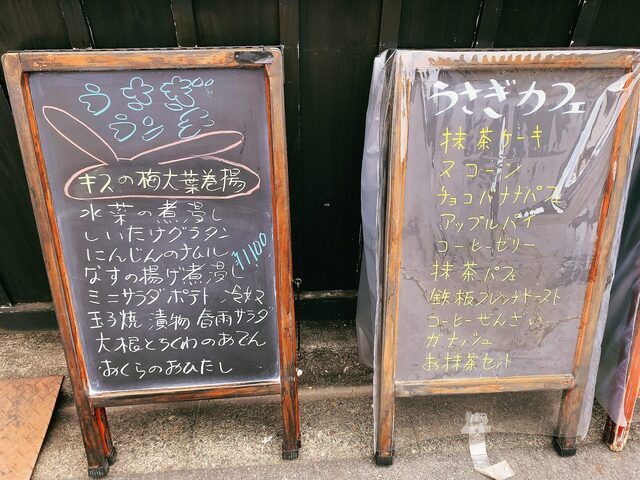 うさぎ
ランチ
キスの梅大葉巻揚
水菜の煮浸し
しいたけグラタン
にんじんのナムル
¥1100
なすの揚げ煮浸し
ミニサラダポテト 冷奴
玉子焼 漬物 春雨サラダ
大根とちくわのおでん
おくらのおひたし
うさぎカフェ
抹茶ケーキ
スコーン
チョコバナナパフェ
アップルパイ
コーヒーゼリー
抹茶パフェ
鉄板フレンチトースト
コーヒーぜんざい
ガナッシュ
お抹茶セット